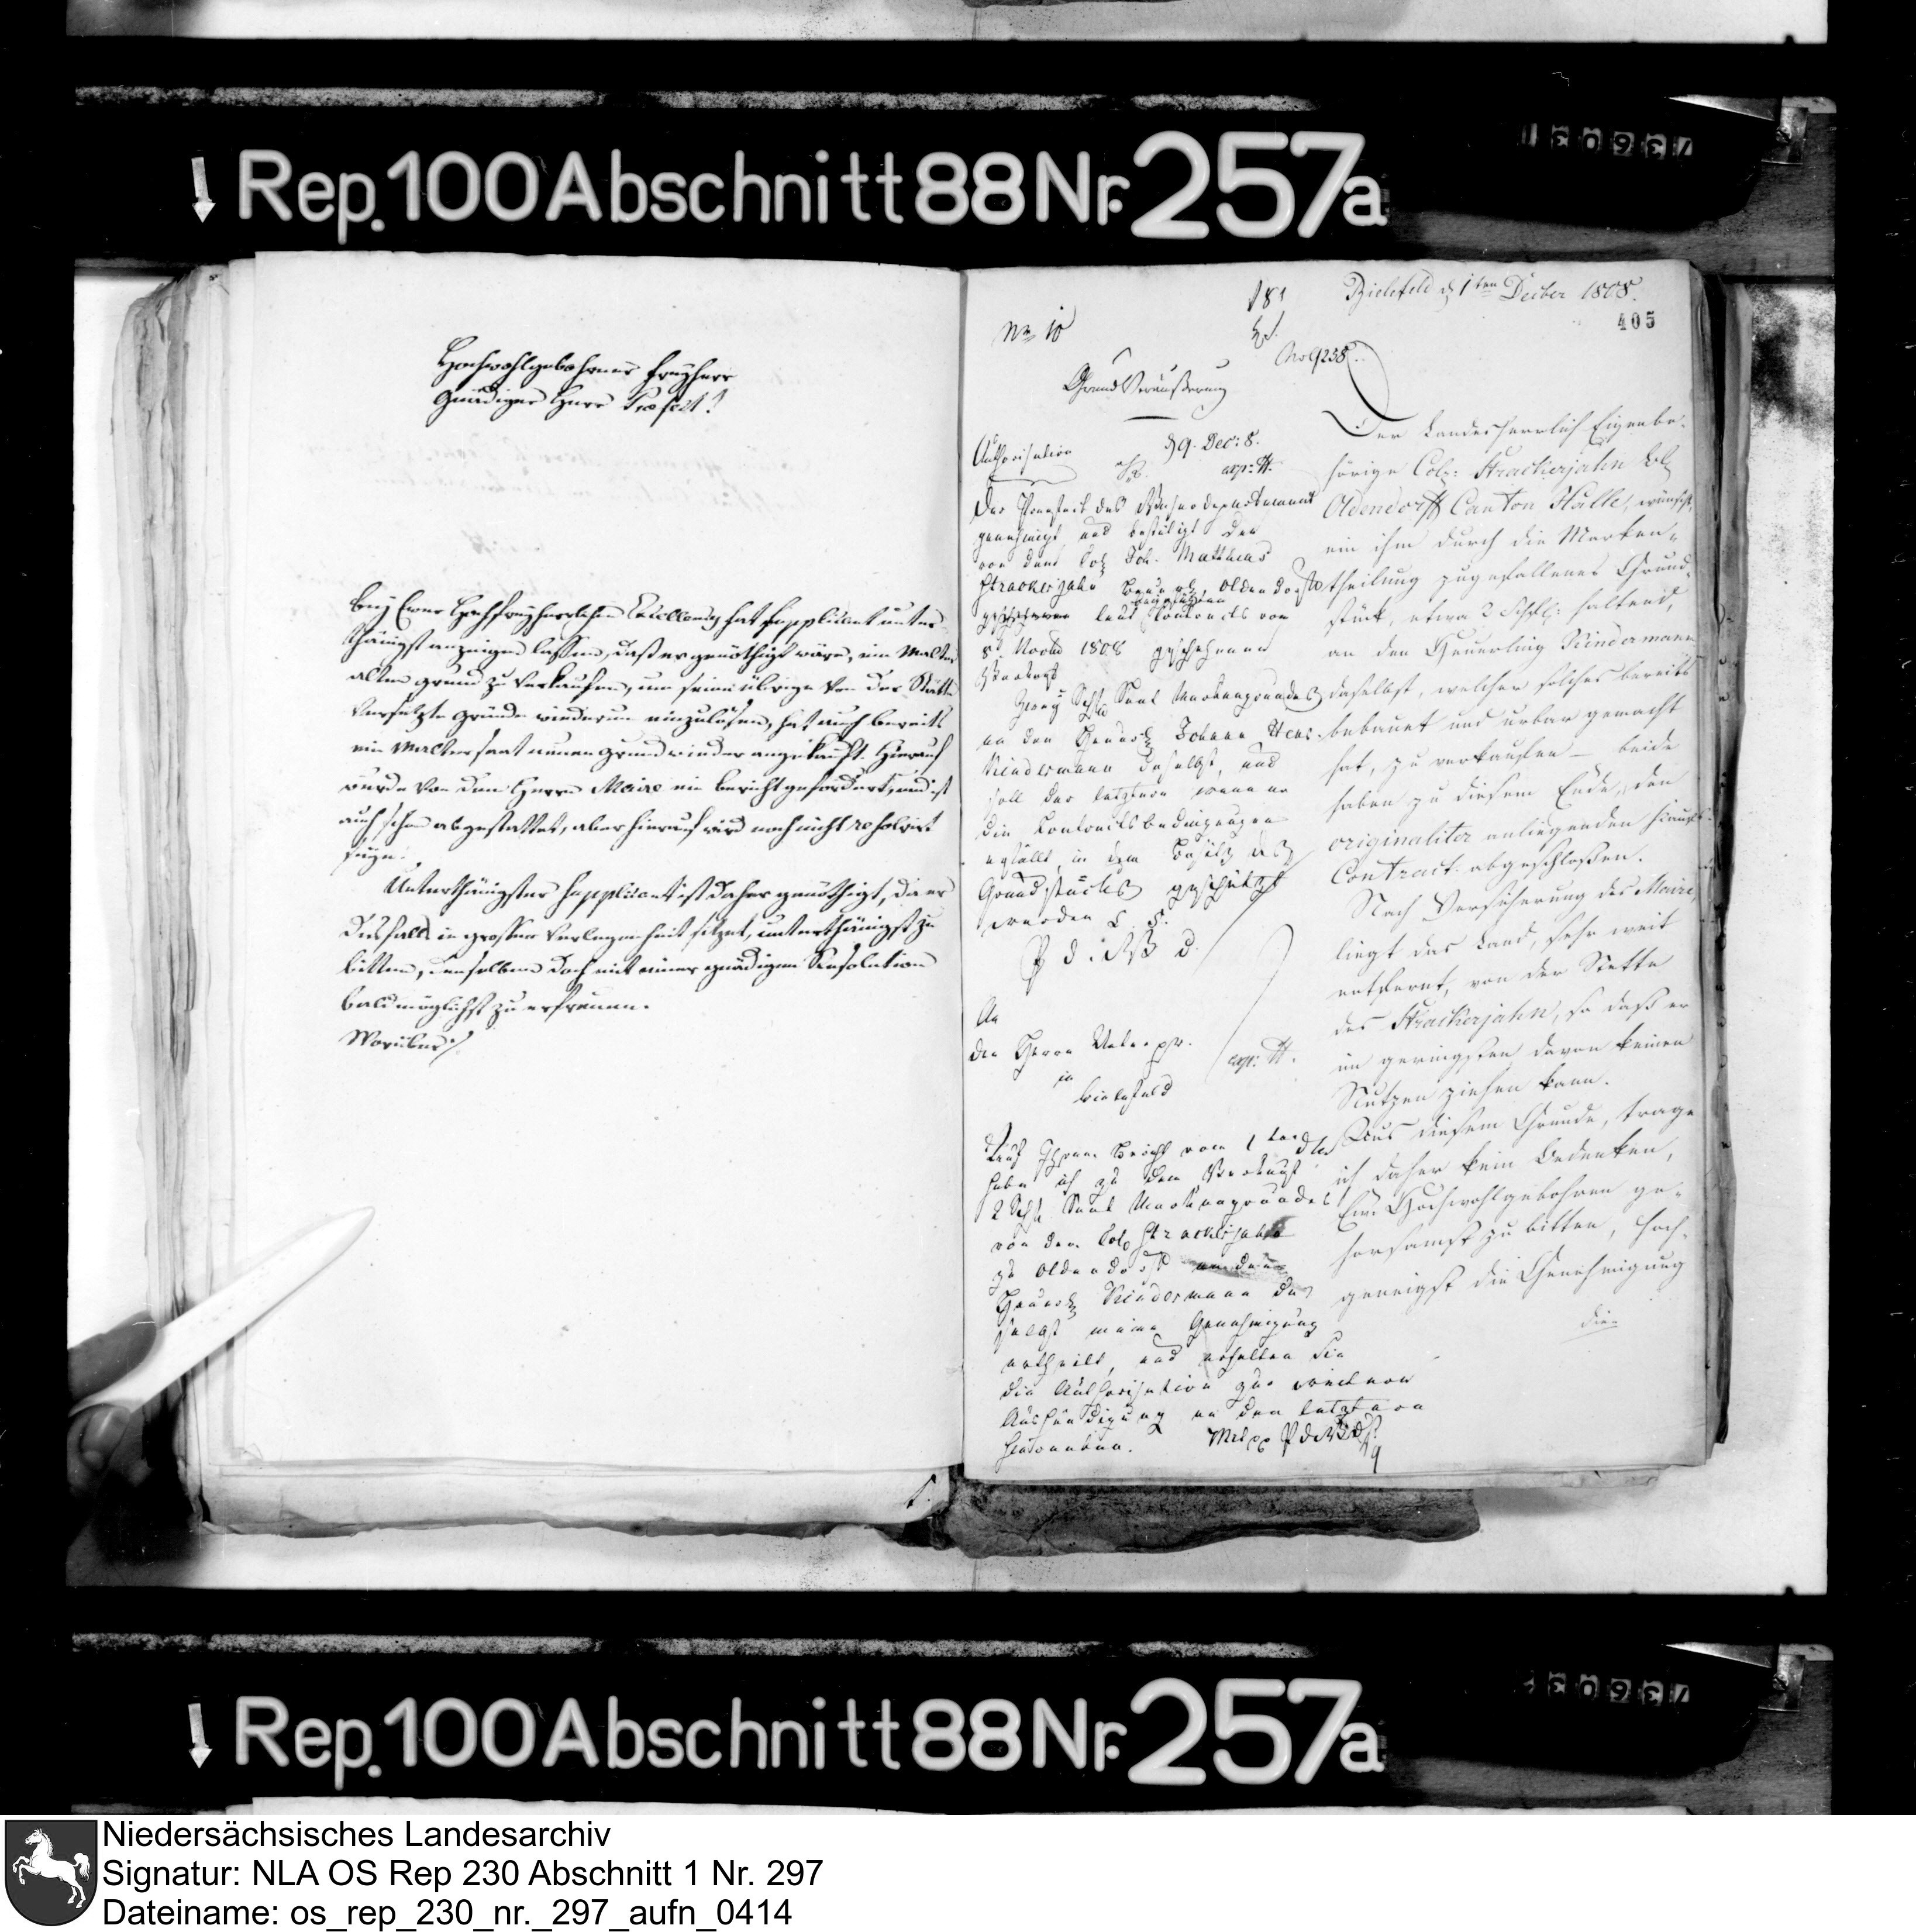 Rep. 100 Abschnitt 88 Nr. 257a
Hochwohlgebohrner Freyherr
Gnädiger Herr Praefect!
Bey Ewer Hochfreyherrlichen Excellenz hat Supplicant unter-
thänigst anzeigen lassen, daß er genöthigt wäre, ein Malter
alten grund zu verkaufen, um seine übrige von der Stätte
versetzte Gründe wiederum einzulösen, hat auch bereits
ein Maltersaat neuen grund wieder angekauft. Hierauf
wurde von dem Herrn Maire ein bericht gefordert, und ist
auch schon abgestattet, aber hierauf wird noch nicht resolvirt
seyn.
Unterthänigster Supplicant ist daher genöthigt, da er
desfalls in grosser Verlegenheit sitzet, unterthänigst zu
bitten, denselben doch mit einer gnädigen Resolution
baldmöglichst zu erfreuen.
Worüber
Bielefeld d 1ten Decber 1808.
181
405
No 10
No 9238
Grund Veräußerung
Authorisation
d 9. Dec: 8.
exp: H.
Der Praefect des Weserdepartements
genehmigt und bestätigt den
von dem Col Joh. Matthias
Strackerjahn Oldendorff
laut Contracts vom
8t Novbr 1808 geschehenen
Verkauf
zwey Schfl Saat Markengrundes
an den Heuerl Johann Henr.
Kindermann daselbst, und
soll der letztere wenn er
die Contractsbedingungen
erfüllt, in dem Besitz des
Grundstücks geschützt
werden
P d. W D.
An
den Herrn Unterpr.
in
Bielefeld
exp: H.
Auf Ihren Bericht vom 1ten dies
habe ich zu dem Verkauf
2 Schfl Saat Markengrundes
von dem Col Strackerjahn
zu Oldendorff an den
Heuerl Kindermann da
selbst meine Genehmigung
ertheilt, und erhalten Sie
die Authorisation zur weitern
Aushändigung an den letztern
hieneben.
Der Landesherrlich Eigenbe-
hörige Col: Strackerjahn
Oldendorff Canton Halle, wünscht,
ein ihm durch die Marken-
theilung zugefallenes Grund-
stück, etwa 2 Schfl: haltend,
an den Heuerling Kindermann
daselbst, welcher solches bereits
bebauet und urbar gemacht
hat, zu verkaufen — beide
haben zu diesem Ende, den
originaliter anliegenden
Contract abgeschloßen.
Nach Versicherung des Maire,
liegt das Land, sehr weit
entfernt, von der Stette
des Strackerjahn, so daß er
im geringsten davon keinen
Nutzen ziehen kann.
Aus diesem Grunde, trage
ich daher kein Bedenken,
Ew. Hochwohlgebohren ge-
horsamst zu bitten, hoch-
geneigst die Genehmigung
die-
Rep. 100 Abschnitt 88 Nr. 257a
Niedersächsisches Landesarchiv
Signatur: NLA OS Rep 230 Abschnitt 1 Nr. 297
Dateiname: os_rep_230_nr._297_aufn_0414